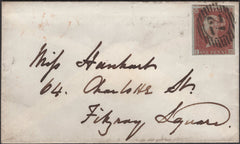 Miss Hanhart
64. Charlotte St.
Fitzroy Square.